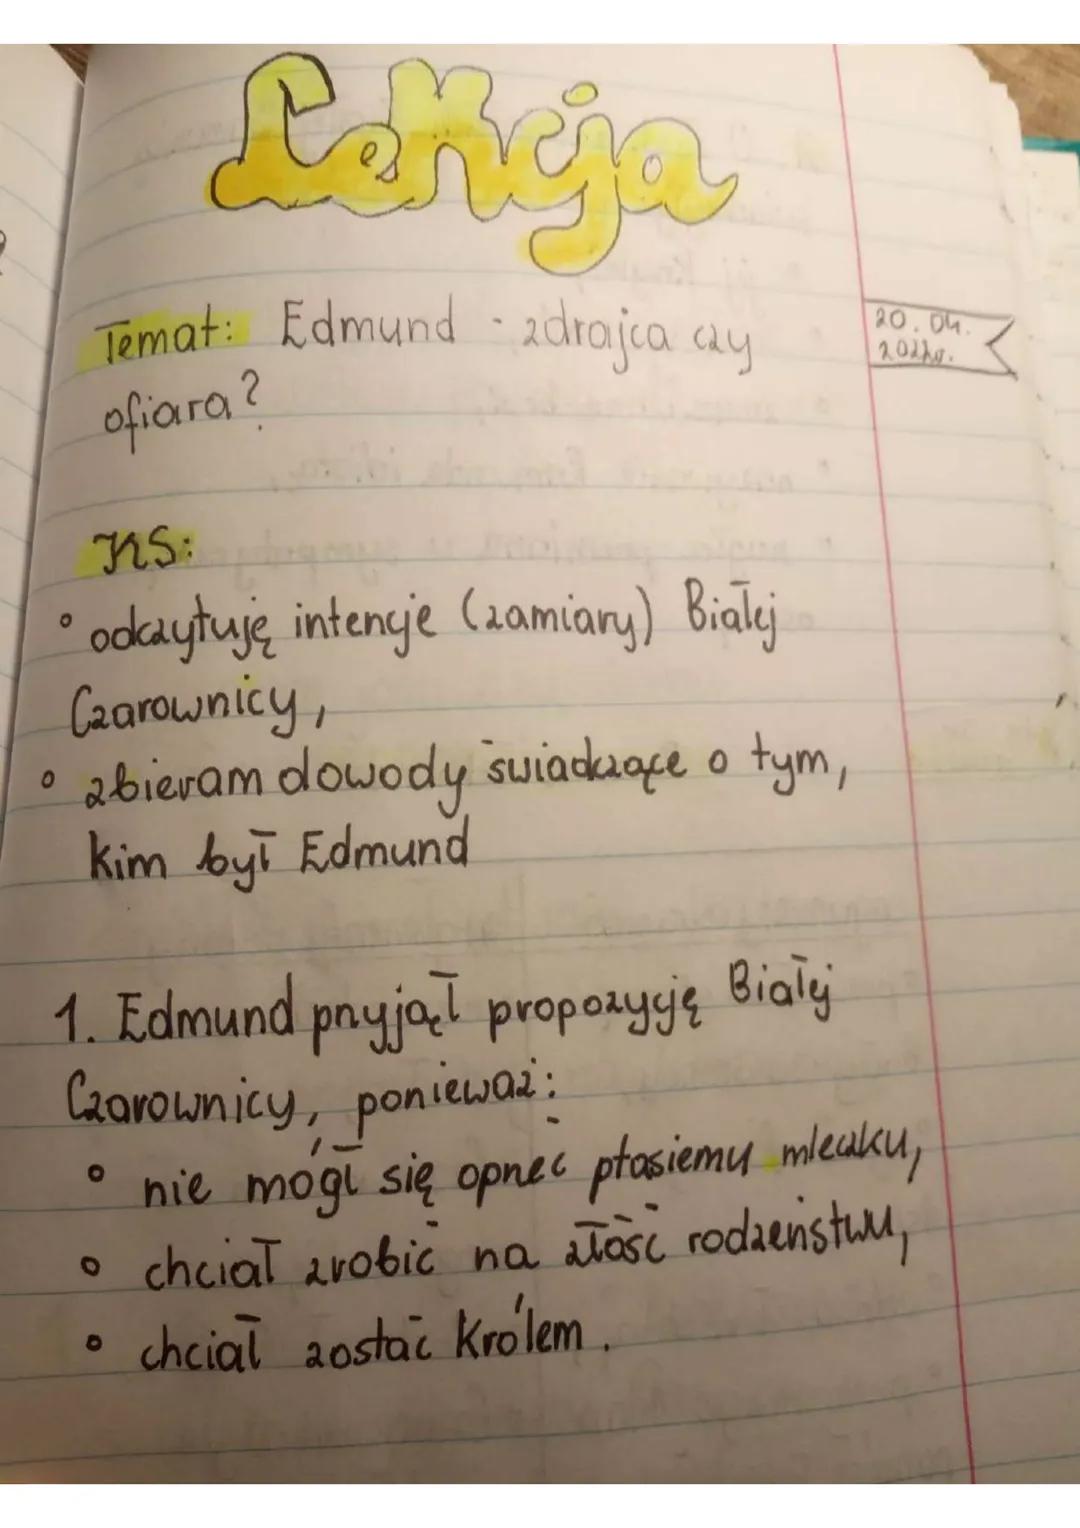 Lekcja
Temat: Edmund - zdrajca czy
20.04.
2022r.
ofiara?
KS:
° odczytuję intencje (zamiary) Białej
Czarownicy,
° zbieram dowody świadczące o tym,
kim był Edmund
1. Edmund przyjął propozycję Białej
Czarownicy, ponieważ:
° nie mógł się oprzeć ptasiemu mleczku,
° chciał zrobić na złość rodzeństwu,
° chciał zostać królem.